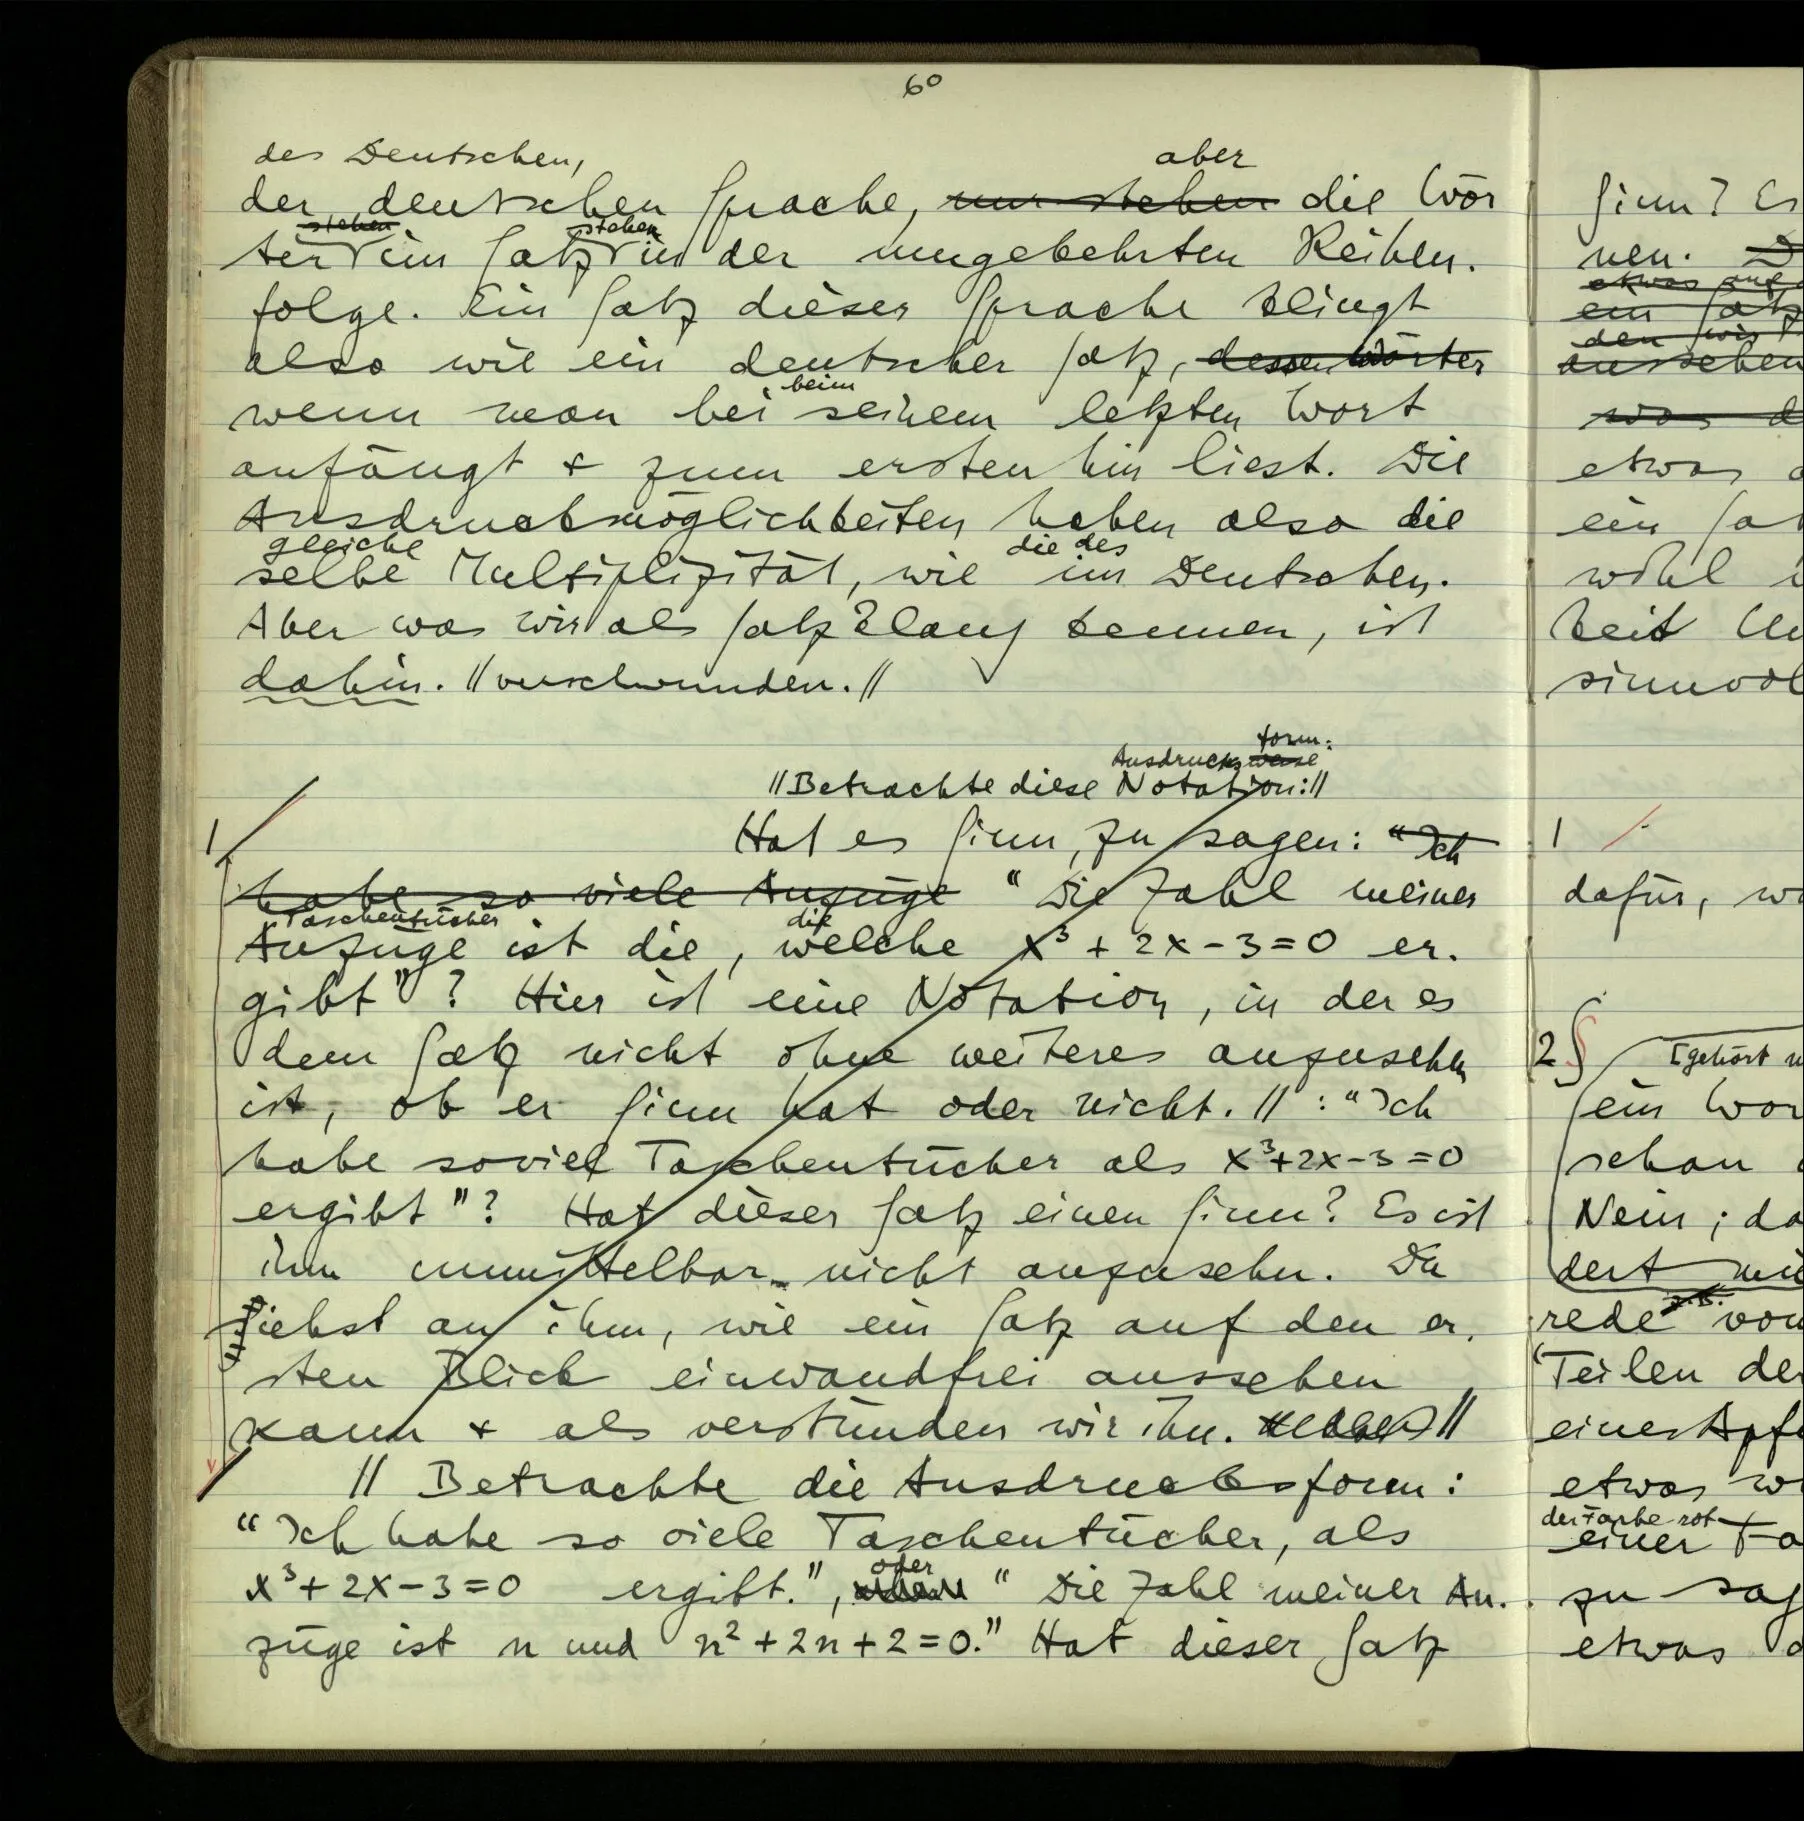 60
des Deutschen,
aber
der deutschen Sprache, nur stehen die Wör
stehen stehen
ter im Satz in der umgekehrten Reihen-
folge. Ein Satz dieser Sprache klingt
also wie ein deutscher Satz, dessen Wörter
beim
wenn man bei seinem letzten Wort
anfängt & zum ersten hin liest. Die
Ausdrucksmöglichkeiten haben also die
gleiche die des
selbe Multiplizität, wie im Deutschen.
Aber was wir als Satzklang kennen, ist
dahin. || verschwunden. ||
form:
Ausdrucksweise
|| Betrachte diese Notation: ||
1
Hat es Sinn, zu sagen: “Ich
habe so viele Anzüge “Die Zahl meiner
Taschentücher die
Anzüge ist die, welche x³ + 2x - 3 = 0 er-
gibt”? Hier ist eine Notation, in der es
dem Satz nicht ohne weiteres anzusehn
ist, ob er Sinn hat oder nicht. || : “Ich
habe soviel Taschentücher als x³+2x-3=0
ergibt”? Hat dieser Satz einen Sinn? Es ist
ihm unmittelbar nicht anzusehn. Du
siehst an ihm, wie ein Satz auf den er-
sten Blick einwandfrei aussehen
kann & als verstünden wir ihn. ||
|| Betrachte die Ausdrucksform:
“Ich habe so viele Taschentücher, als
oder
x³+2x-3=0 ergibt.”, “Die Zahl meiner An-
züge ist n und n²+2n+2=0.” Hat dieser Satz
Sinn? Es
nen.
etwas auf
ein Satz
den wir
aussehen
was d
etwas
ein
wohl
heit
1
dafür,
2 § [gehört
ein
schon
Nein; da
dert
z.B.
rede von
Teilen der
eines
etwas
der Farbe rot
einer
zu
etwas